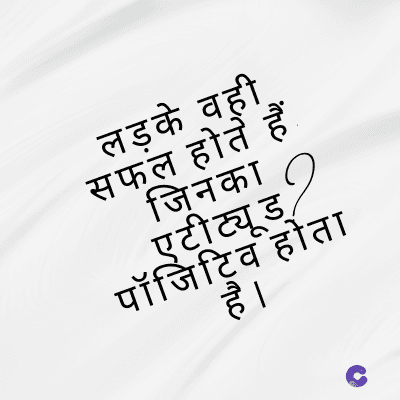 लड़के वही
सफल होते हैं
जिनका
एटीट्यूड ?
पॉजिटिव होता
है।